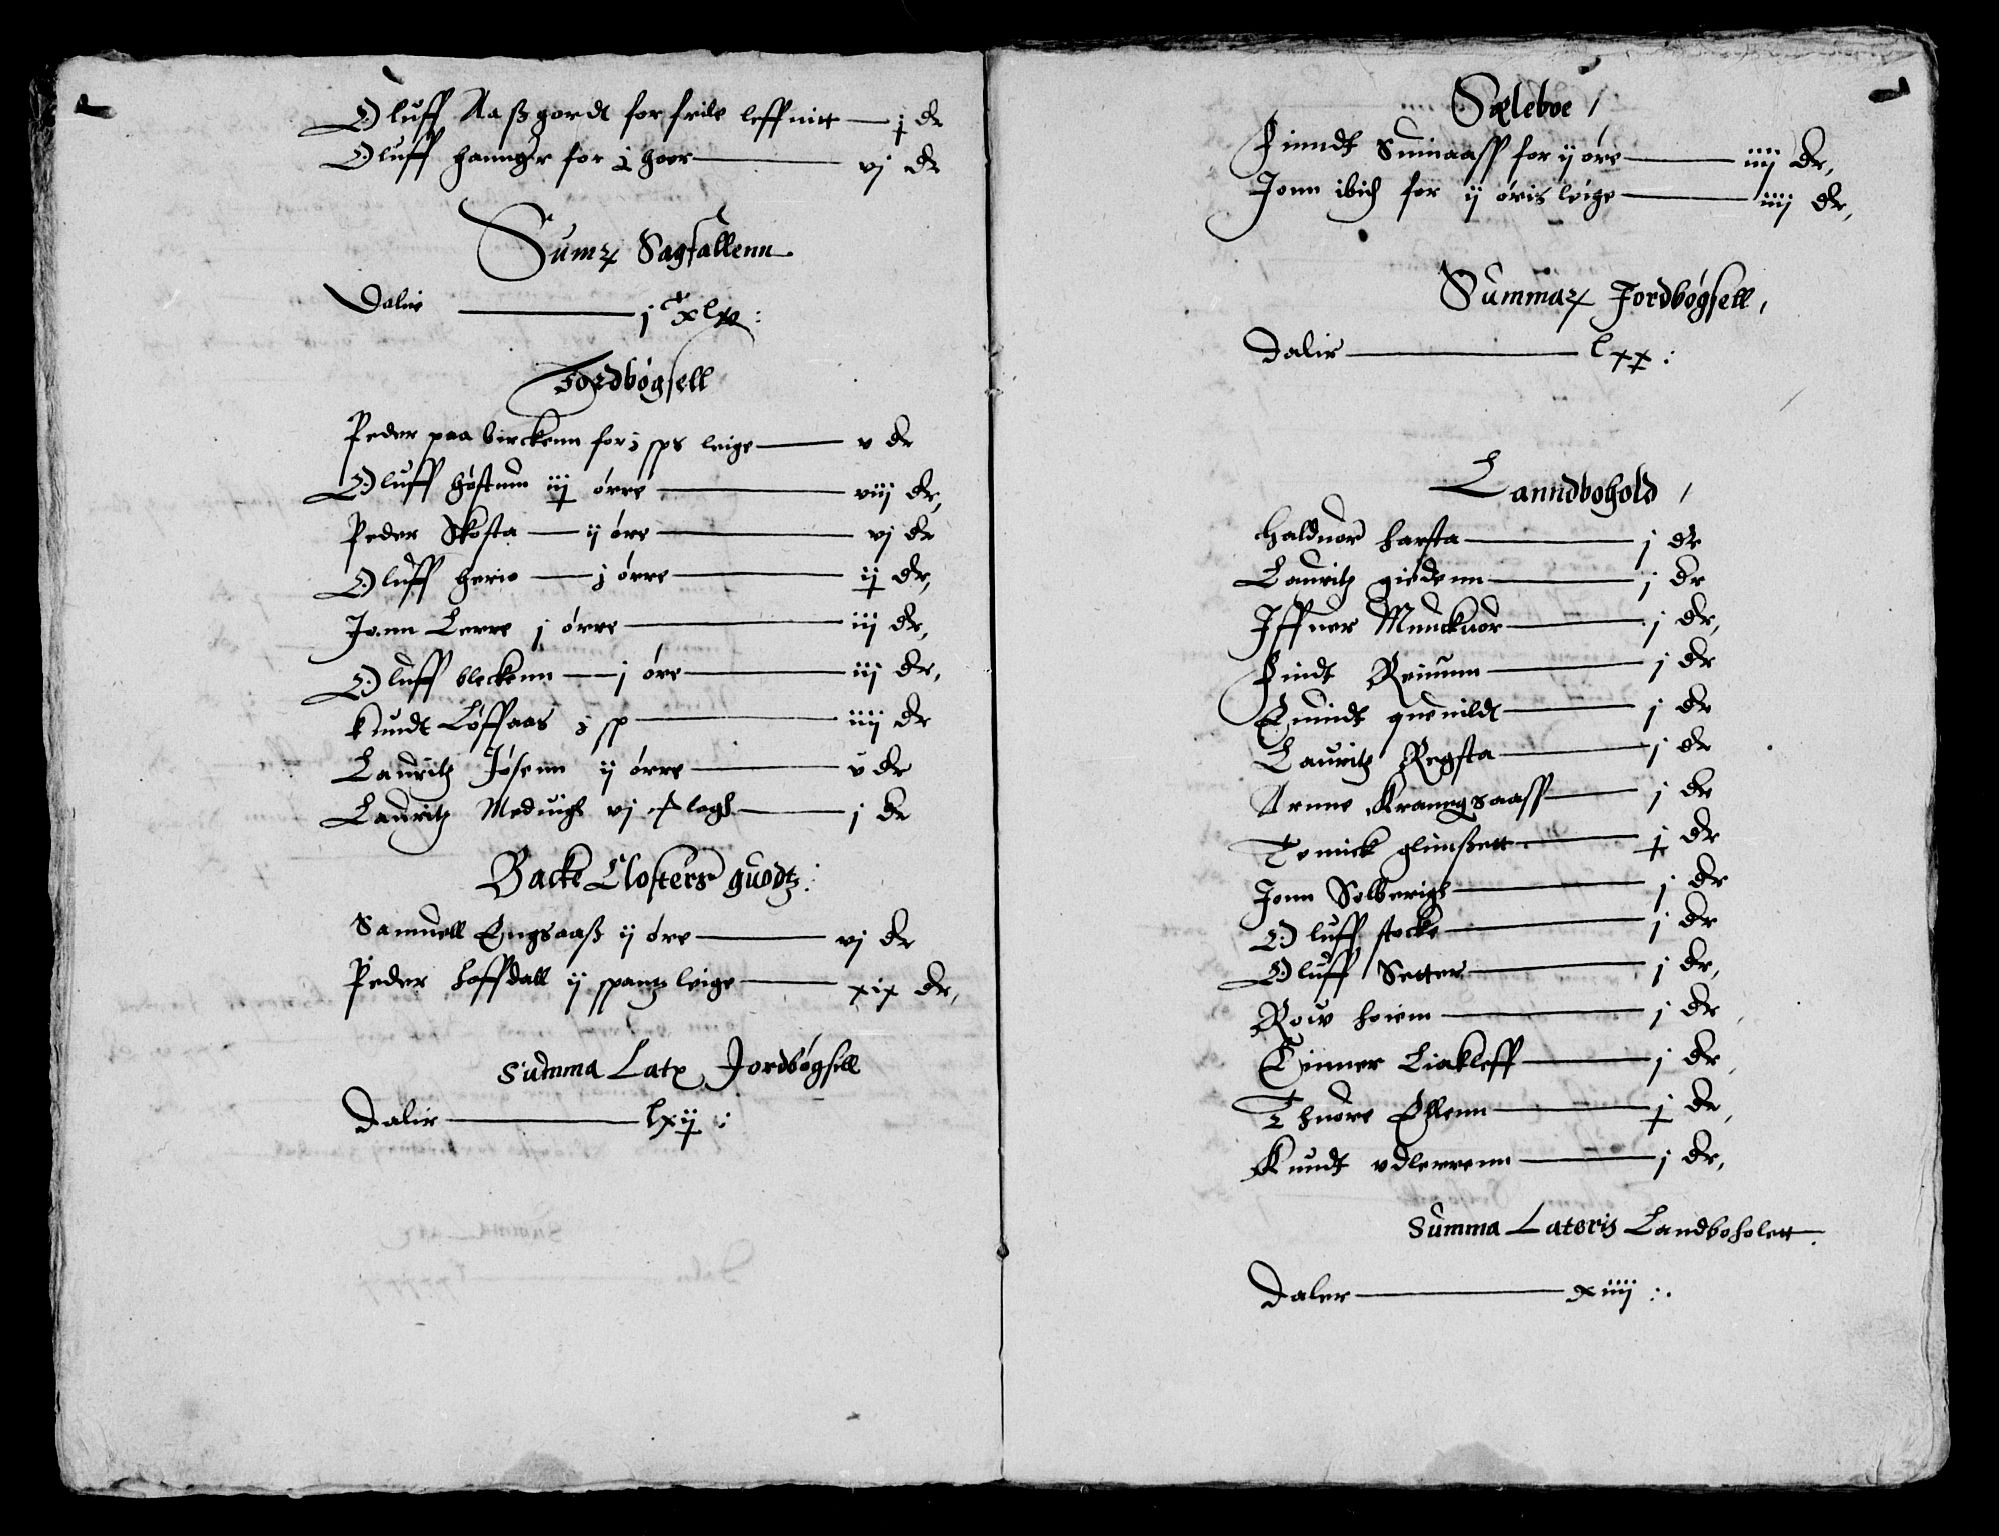 Oluff Aaßgordt for frile leffnitt — j dr
Oluff hannger for j hoer — vj dr
Summa Sagfallenn
Dalir — j C xlv :
Jordbøgsell
Peder paa birckenn for j sps leige — v dr
Oluff Høstum iij ørre — viij dr,
Peder Skosta — ij øre — vj dr
Oluff herie — j ørre — ij dr,
Jonn Lerre j ørre — iij dr,
Oluff bleckenn — j øre — iij dr,
Knudt Løffaas j sp — iiij dr
Lauritz Jøsenn ij ørre — v dr
Lauritz Meduigh vj log — j dr
Backe Closters guodtz :
Samuell Engsaaß ij øre — vj dr
Peder hoffdall ij spantz leige — xix dr,
Summa Lateris Jordbøgsell
Dalir — lxij :
Sæleboe /
Findt Sumaass for ij øre — iiij dr,
Jonn ibid for ij øris leige — iiij dr,
Summa Jordbøgsell,
Dalir — lxx :
Lanndbohold /
Halduor harsta — j dr
Lauritz giedenn — j dr
Iffuer Munckuor — j dr,
Findt Reinum — j dr
Emindt quenildt — j dr
Lauritz Regsta — j dr
Arnne Kranngsaass — j dr
Tomick glimßett — j dr
Jonn Solberigh — j dr
Oluff stocke — j dr
Oluff Setter — j dr,
Roiv hoiem — j dr,
Einner Liakleff — j dr,
Thuore Øllenn — j dr,
Knudt vdlerrenn — j dr,
Summa Lateris Landboholett
Daler — xiiij :